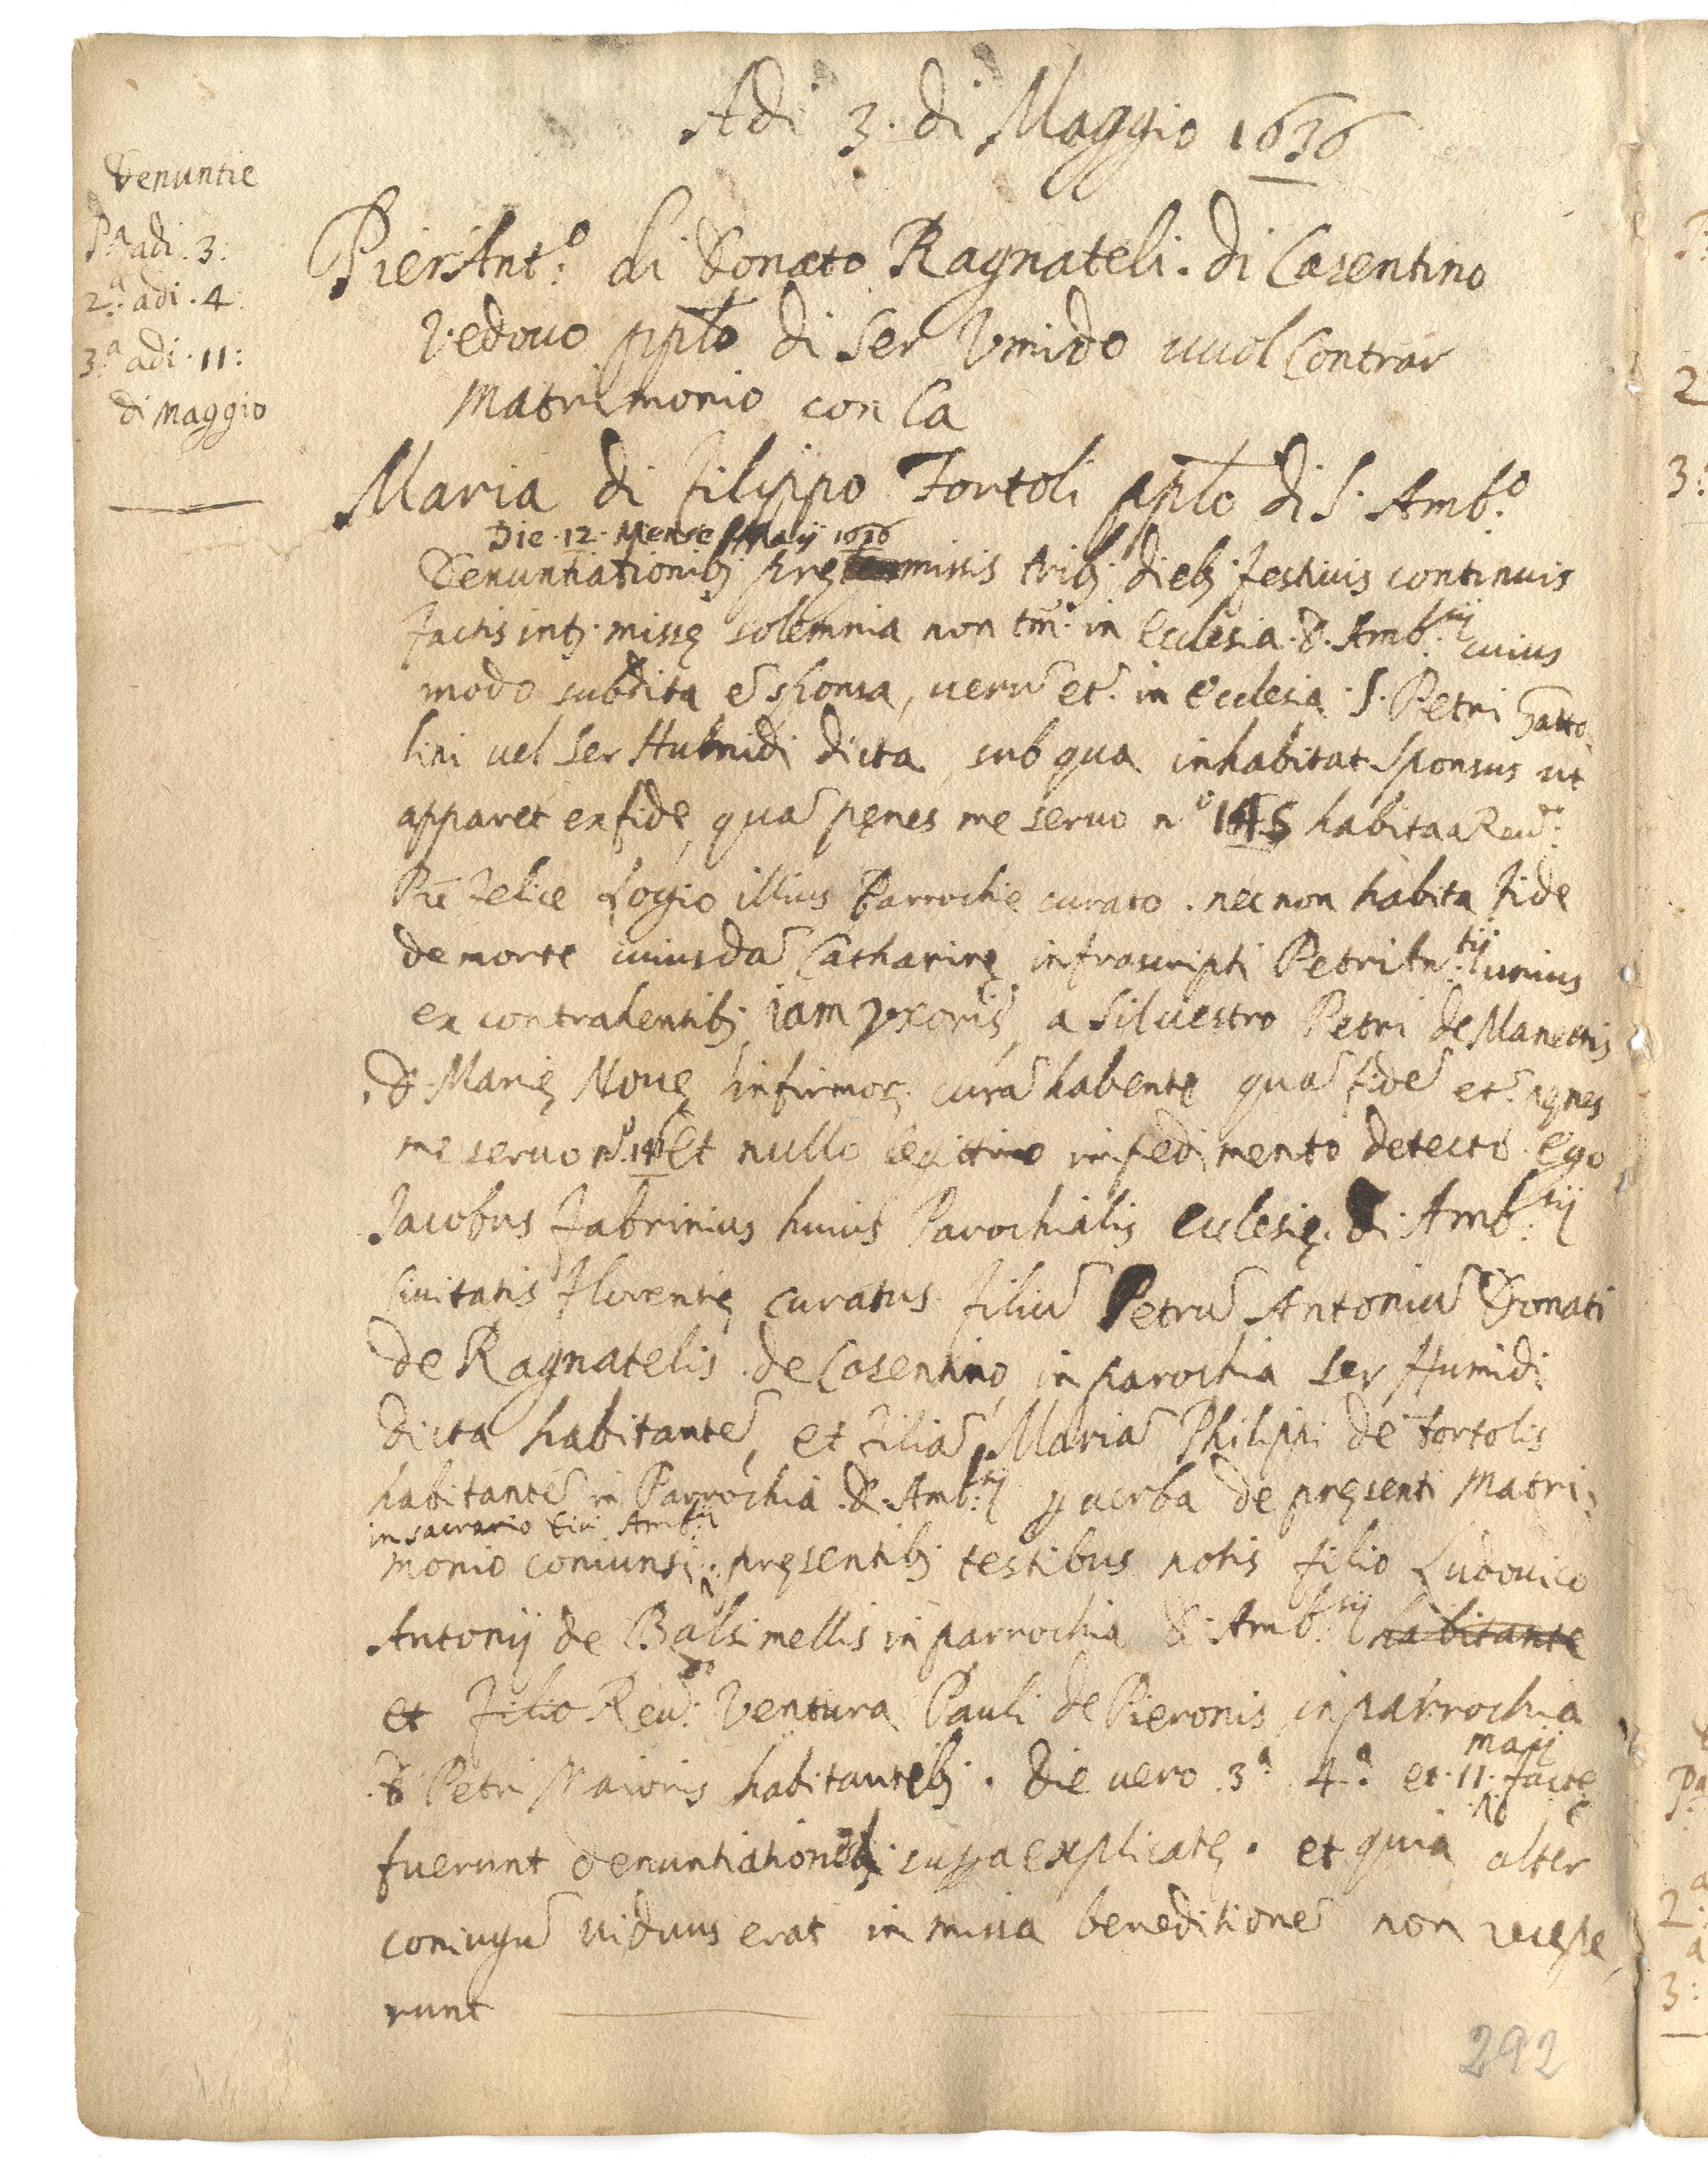 Adi 3. di Maggio 1636
Denuntie
Pª adi. 3:
2ª. adi. 4
3ª adi. 11:
di Maggio
PierAnt:º di Donato Ragnateli. di Casentino
Vedovo ppľo di Ser Vmido uuol Contrar
Matrimonio con la
Maria di Filippo Tortoli ppľo di S. Amb:º
Die. 12. Mense Maij 1636
Denuntiationibꝫ pręmissis tribꝫ diebꝫ festiuis continuis
factis intꝫ. missę solemnia non tm̃. in Ecclesia. S. Amb:sij cuius
modo subdita ẽ sponsa, uerũ et̃. in Ecclesia. S. Petri Gatto
lini uel Ser Humidi dicta, sub qua inhabitat Sponsus ut
apparet ex fide, quã pęnes me seruo nº 145 habita a Reu:do
Prẽ Felice Logio illius Parrochie curato. nec non habita fide
de morte cuiusdã Catharinę infrascripti Petri An:tij unius
ex contrahentibꝫ iam vxoris, a Siluestro Petri de Manettis
S. Marię Nouę infirmoꝝ curã habente quã fidẽ et̃. pęnes
me seruo nº. 146 Et nullo legittimo inpedimento detecto Ego
Jacobus Fabrinius huius Parochialis Ecclesię. S. Amb:sij
Ciuitatis Florentię curatus filiũ Petrũ Antoniũ Donati
de Ragnatelis. de Casentino, in parochia Ser Humidi
dicta habitantẽ, et filiã Mariã Philippi de Tortolis
habitantẽ in Parrochia. S. Amb:sij ꝑ uerba de pręsenti Matri
in sacrario Amb:sij
monio coniunsi: pręsentibꝫ testibus notis filio Ludouico
Antonij de Balsimellis in parrochia S. Amb:sij habitante
et filio Reu:do Ventura Pauli de Pieronis in parrochia
S. Petri Maioris habitantebꝫ. Die uero 3ª 4ª. et. 11. Maij factę
fuerunt denuntiationes suꝑa explicatę. et quia alter
coniugũ uiduus erat in missa beneditionẽ non recepe
runt
292